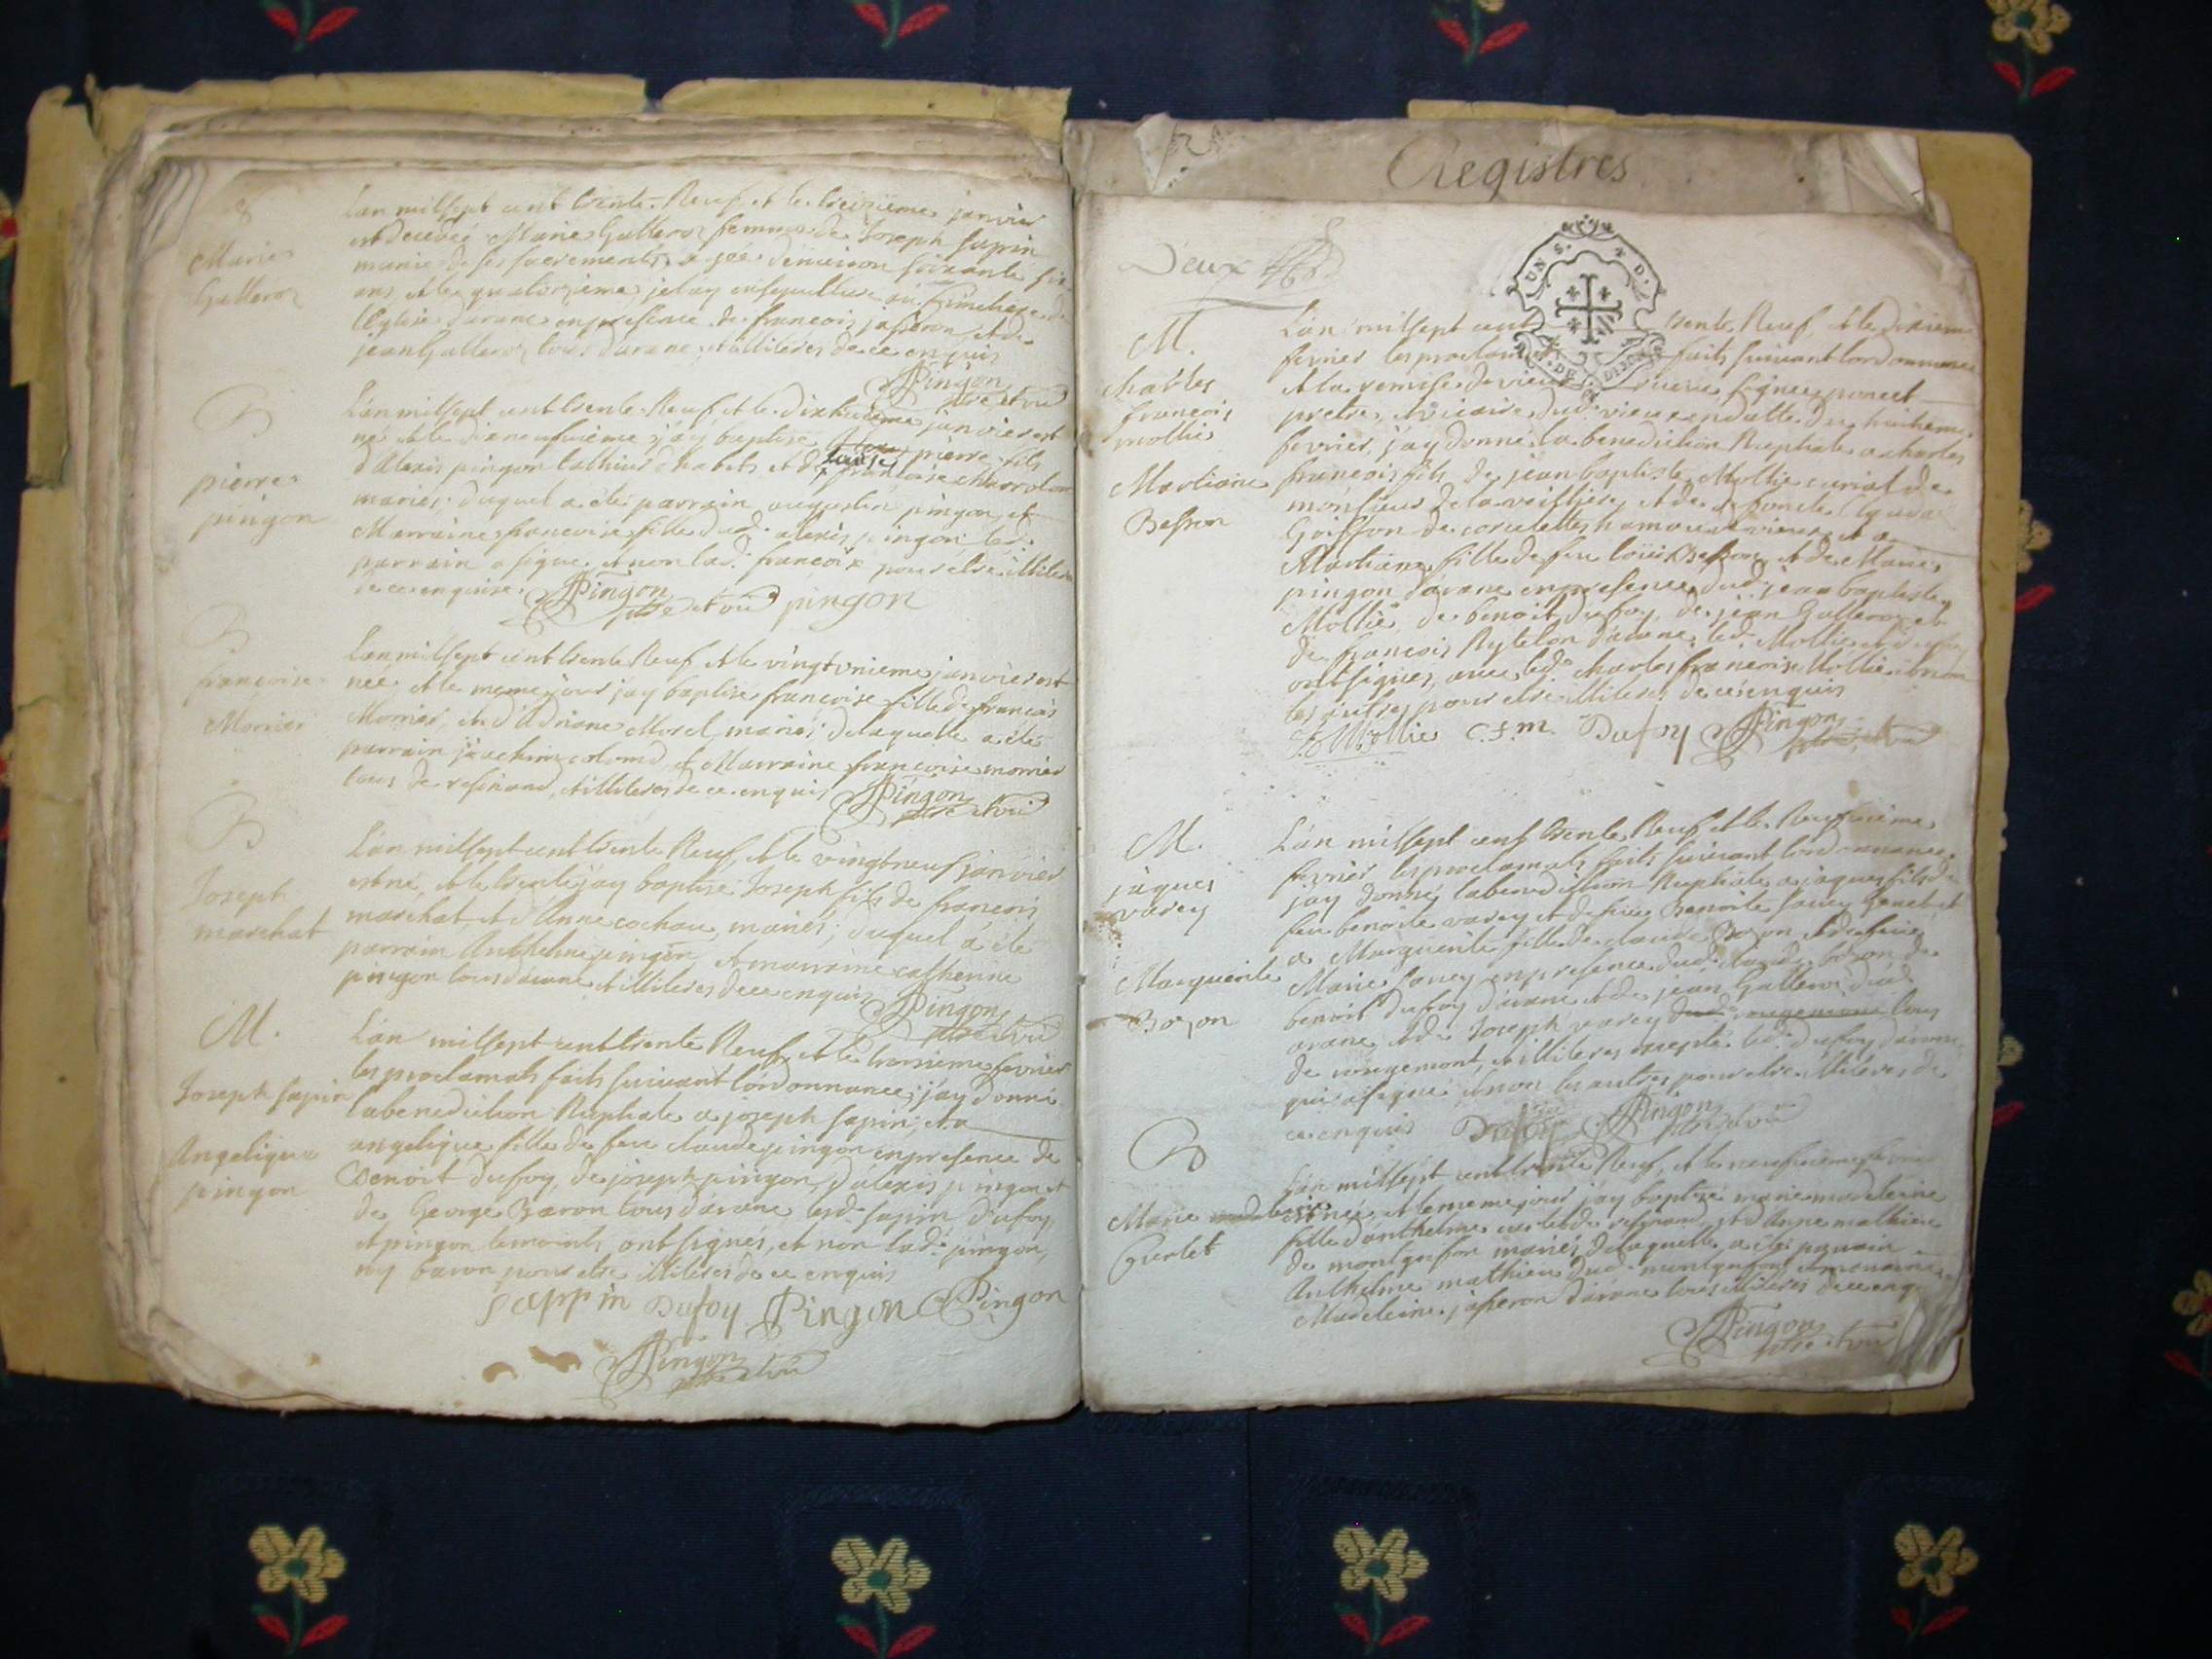 Marie
Gallero
Lan mil sept cent trente Neuf et le treizieme janvier
est decedeé Marie Galleroz femme de Joseph Sapin
munie de ses sacrements, agée d'environ soixante six
ans, et le quatorzieme je lay ensepulture au Cimetiere de
l'Eglise d'arane en presence de francois jasseron et de
jean Galleroz tous d'arane et illiteres de ce enquis
Pingon
ptre et vic
B
pierre
pingon
L'an mil sept cent trente Neuf et le dixhuitieme janvier est
né et le dixneufvieme j'ay baptise pierre fils
d'Alexis pingon tallieur d'habits et de francoise chardon
mariés; duquel a été parrain augustin pingon, et
Marraine francoise fille dud. alexis pingon; led.
parrain a signé, et non lad. francoise pour etre illitere
de ce enquise. Pingon pingon
ptre et vic
B
francoise
Morrier
Lan mil sept cent trente Neuf et le vingt unieme janvier est
neé et le meme jour jay baptise francoise fille de francois
Morrier, et d'Adriane Morel, mariés; de laquelle a été
parrain joachim colomb, et Marraine francoise morrier
tous de resinand, et illiteres de ce enquis Pingon
ptre et vic
B
Joseph
marchat
L'an mil sept cent trente Neuf, et le vingt neuf janvier
est né, et le trente jay baptise Joseph fils de francois
marchat, et d'Anne cochau, mariés; duquel a été
parrain Anthelme pingon, et marraine catherine
pingon tous d'arane et illiteres de ce enquis Pingon
ptre et vic
M.
Joseph Sapin
Angelique
pingon
L'an mil sept cent trente Neuf, et le troisieme fevrier
les proclamats faits suivant l'ordonnance; j'ay donné
la benediction Nuptiale a joseph Sapin, et a
angelique fille de feu claude pingon en presence de
Benoit Dufoy, de joseph pingon, d'alexis pingon et
de George Baron tous d'arane lesd. Sapin, Dufoy,
et pingon temoints ont signés, et non lad. pingon,
ny baron pour etre illiteres de ce enquis
Sappin Dufoy Pingon Pingon
Pingon
ptre et vic
Registres
Deux
UN S. D.
DE DIJON
M.
charles
francois
mollie
Marliane
Besson
L'an mil sept cent trente Neuf, et le dixieme
fevrier les proclamats faits suivant l'ordonnance
et la remise de vieux signee poncet
pretre, et vicaire dud. vieux en datte du huitieme
fevrier, j'ay donné la benediction Nuptiale a charles
francois fils de jean baptiste Mollie curial de
monsieur de la veilliere, et de defunte
Goisson de corcelles hamau de vieux, et a
Marliane fille de feu loüis Besson, et de Marie
pingon d'arane en presence dud. jean baptiste
Mollie, de benoit Dufoy, de jean Galleroz et
de francois Nytelon d'arane, led. Mollie et dufoy
ont signés, avec led. charles francois Mollie et non
les autres pour etre illiteres de ce enquis
Mollie C.F.M. Dufoy Pingon
ptre et vic
M.
jâques
varey
Marguerite
Bozon
L'an mil sept cent trente Neuf et le Neufvieme
fevrier les proclamats faits suivant l'ordonnance
jay donné la benediction Nuptiale a jaques fils de
feu benoite varey et de feüe Benoite
a Marguerite fille de claude Bozon et de feüe
Marie Savey en presence dud. claude bozon de
benoit Dufoy d'arane et de jean Galleroz dud.
arane et de Joseph varey tous
de rougemont, et illiteres excepté led. dufoy d'arane
qui a signé et non les autres pour etre illiteres de
ce enquis Dufoy Pingon
ptre et vic
B
Marie
Curlet
L'an mil sept cent trente Neuf, et le neufvieme fevrier
est neé, et le meme jour j'ay baptisé marie madeleine
fille d'anthelme curlet de resinand, et d'Anne mathieu
de montgrifon mariés; de laquelle a été parrain
Anthelme mathieu dud. montgrifon, et marraine
Madeleine jasseron d'arane tous illiteres de ce enquis
Pingon
ptre et vic